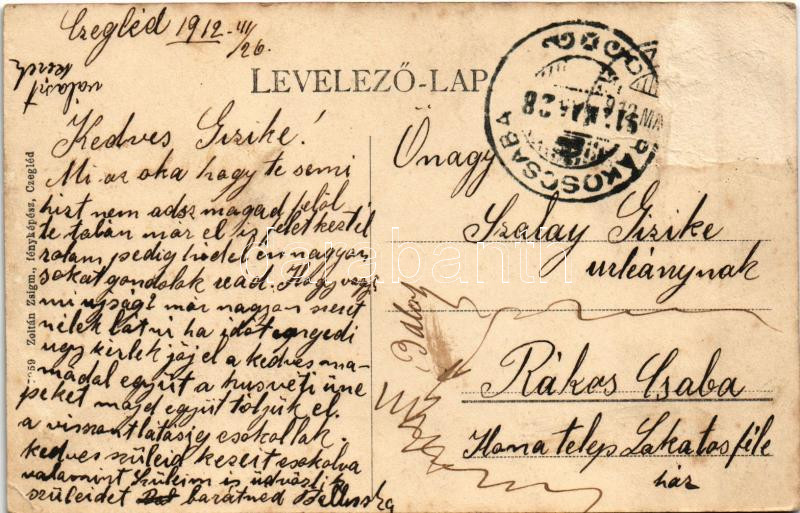 Czegléd 1912 III/26.
választ
kérek
LEVELEZŐ-LAP
RÁKOSCSABA
Kedves Gizike!
Mi az oka hogy te semi
hirt nem adsz magad felöl
te talán már el is feletkeztél
rolam pedig hidd el én nagyon
sokat gondolok reád. Hogy vagy
mi ujság? már nagyon szeret
nélek látni ha időt engedi
ugy kérlek jöj el a kedves ma-
mádal együt a husvéti üne
peket majd együt töljük el.
a viszontlátásig csokollak.
kedves szüleid kezeit csokolva
valamint szüleim is üdvözlik
szüleidet barátned Belluska
Zoltán Zsigm., fényképész, Czegléd
Önagy
Szalay Gizike
urleánynak
Rákos Csaba
Hona telep Lakatos féle
ház
databanth